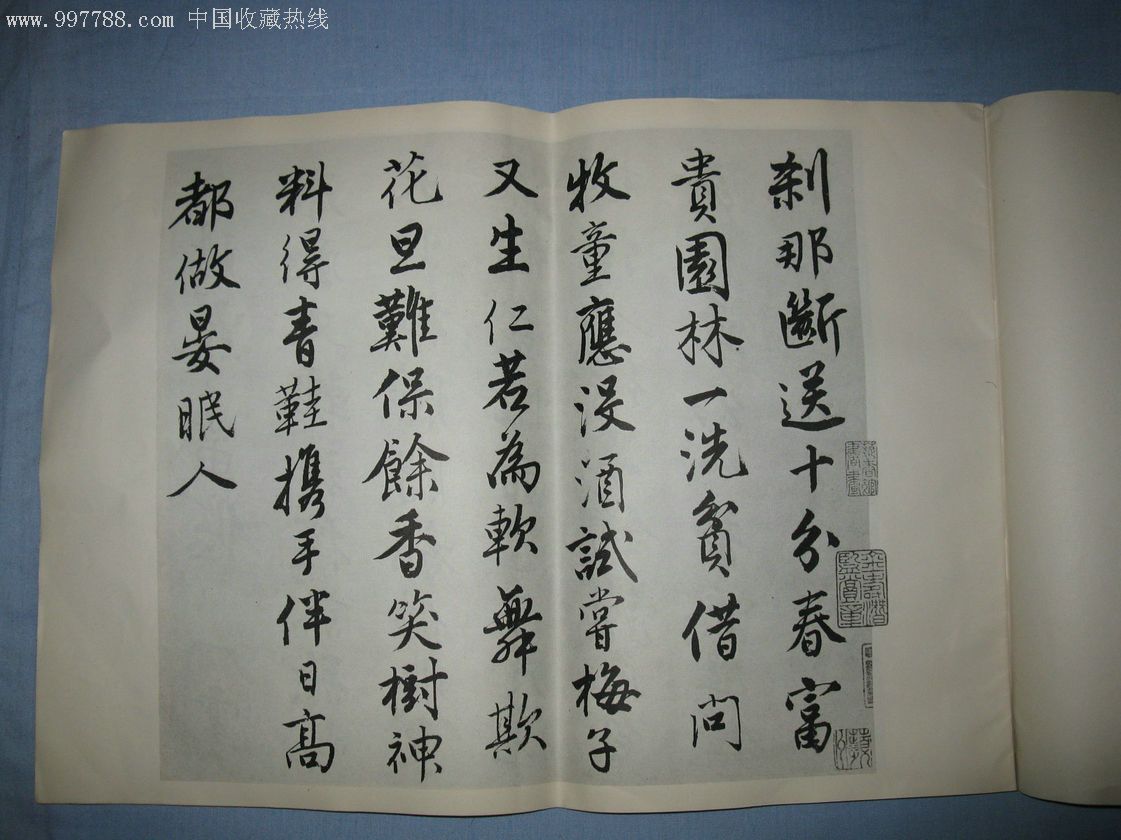 www.997788.com 中国收藏热线
刹那斷送十分春富
貴園林一洗貧借問
牧童應没酒試嘗梅子
又生仁若為軟舞欺
花旦難保餘香笑樹神
料得青鞋携手伴日高
都做晏眠人